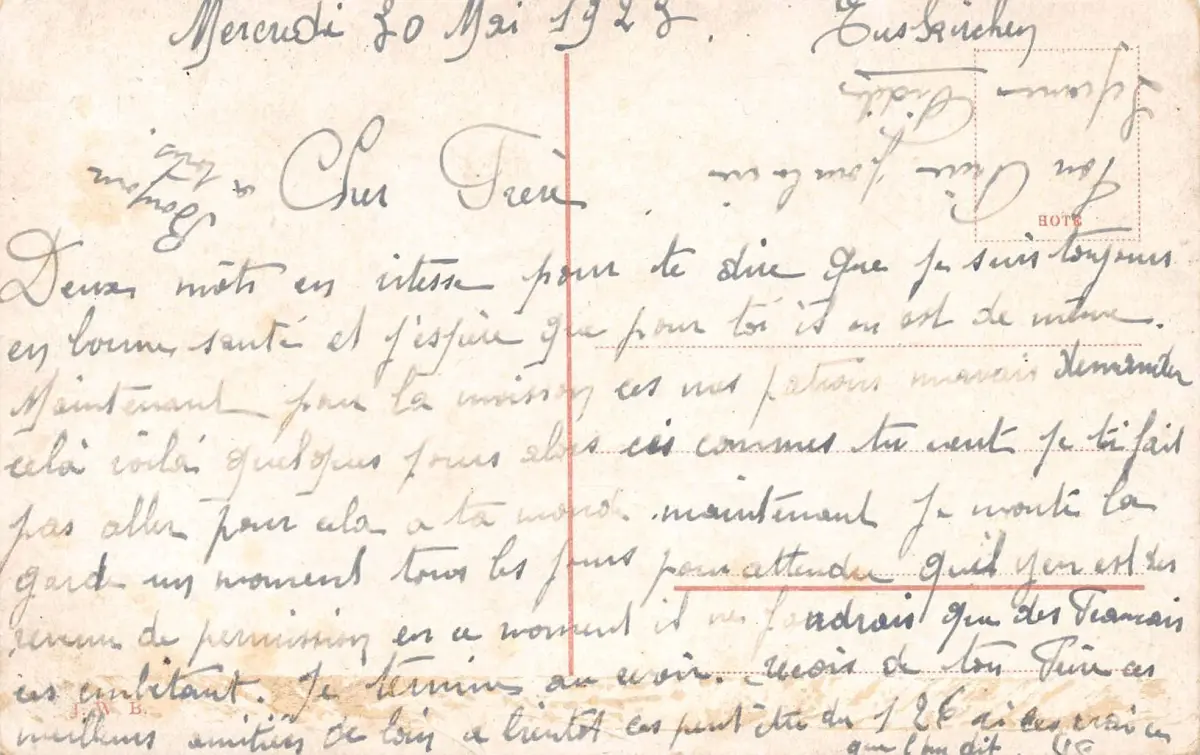 Mercredi 30 Mai 1923. Euskirchen
Ton Frère pour la vie
Bonjour
a tous
Cher Frère
HOTE
Deux môts en vitesse pour te dire que je suis toujours
en bonne santé et j'éspère que pour toi il en est de même.
Maintenant pour la moisson ces nos patrons m'avais demander
celà voilà quelques jours alors ces commes tu veut je ti fait
pas aller pour cela a ta maintenant je monte la
garde un moment tous les jours pour attendre quil y en est des
revenu de permission en ce moment il ne faudrais que des Francais
ces embêtant. Je termine au revoir. recois de ton Frère ces
J. W. B.
meilleurs amitiés de loin a bientôt ces peut être du 126 si ces vrai ce
que l'on dit